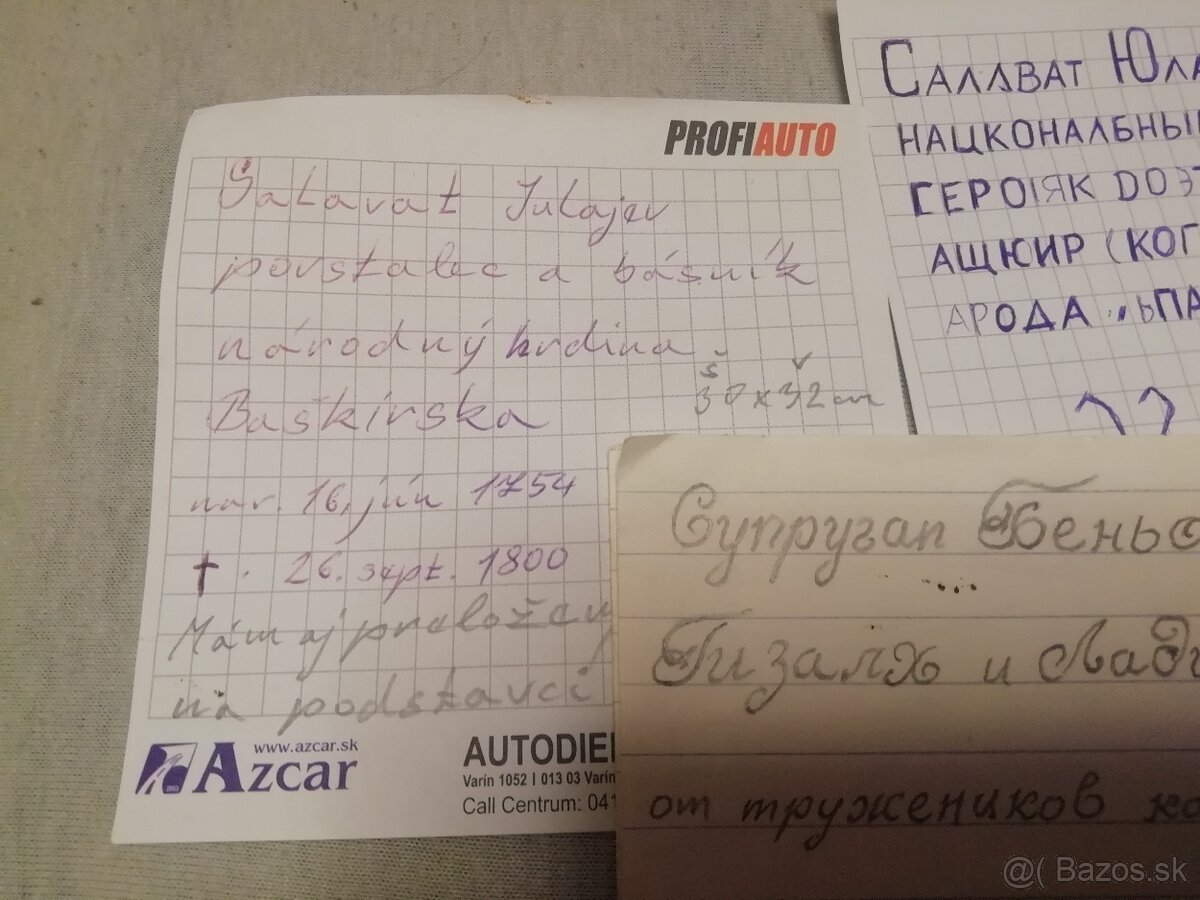 PROFIAUTO
Salavat Julajev
povstalec a básnik
národný hrdina
Baškirska
š v
30 x 32 cm
nar. 16. jún 1754
† . 26. sept. 1800
Mám aj preložený
na podstavci
www.azcar.sk
Azcar
AUTODIEL
Varín 1052 | 013 03 Varín
Call Centrum: 041
САЛАВАТ ЮЛА
НАЦКОНАЛБНЫ
ГЕРО
АЩКИР (КОГ
АРОДА
??
Супругап Бень
и Лади
от тружеников ко
@( Bazos.sk